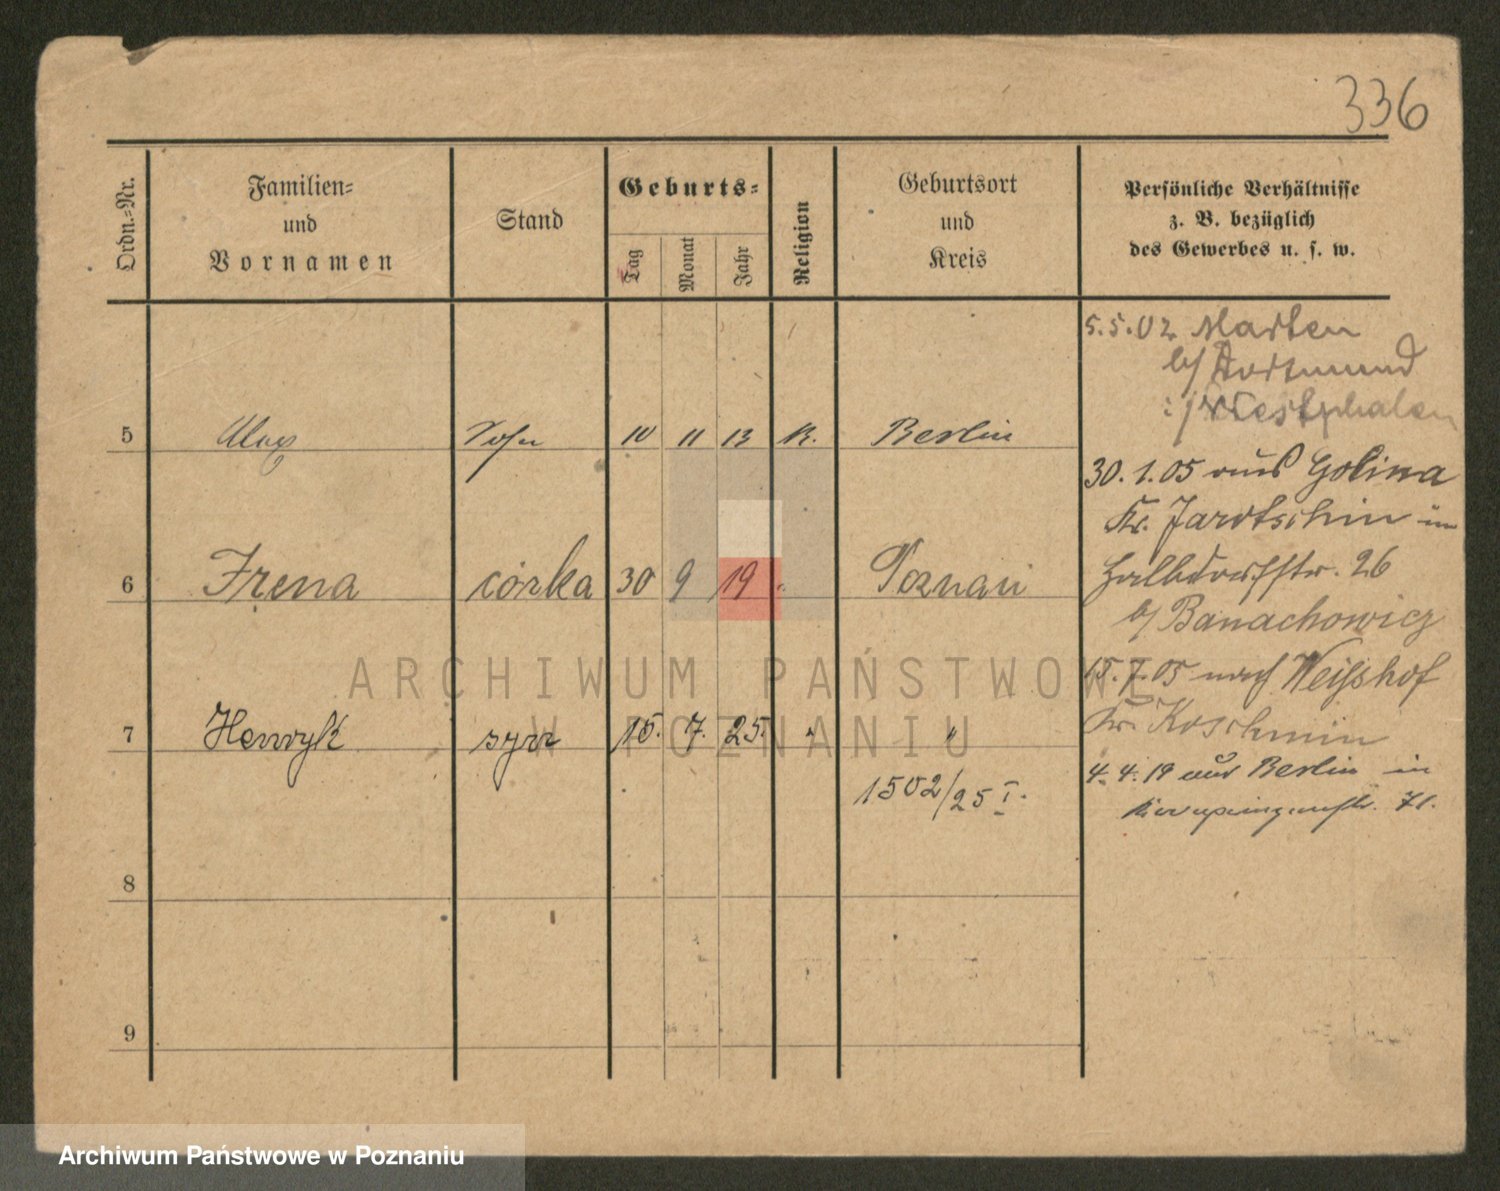 336
Ordn.=Nr.
Familien=
und
Vornamen
Stand
Geburts=
Tag
Monat
Jahr
Religion
Geburtsort
und
Kreis
Persönliche Verhältnisse
z. B. bezüglich
des Gewerbes u. s. w.
5.5.02 Marten
b/ Dortmund
i/ Westphalen
5 Max Sohn 10 11 13 K. Berlin
30. 1. 05 aus Golina
Kr. Jarotschin in
Halbdorfstr. 26
6 Irena córka 30 9 19 " Poznań
b/ Banachowicz
15. 7. 05 nach Weisshof
Kr. Koschmin
7 Henryk syn 15. 7. 25. " "
4. 4. 19 aus Berlin in
71.
1502/25 I.
8
9
ARCHIWUM PAŃSTWOWE
W POZNANIU
Archiwum Państwowe w Poznaniu